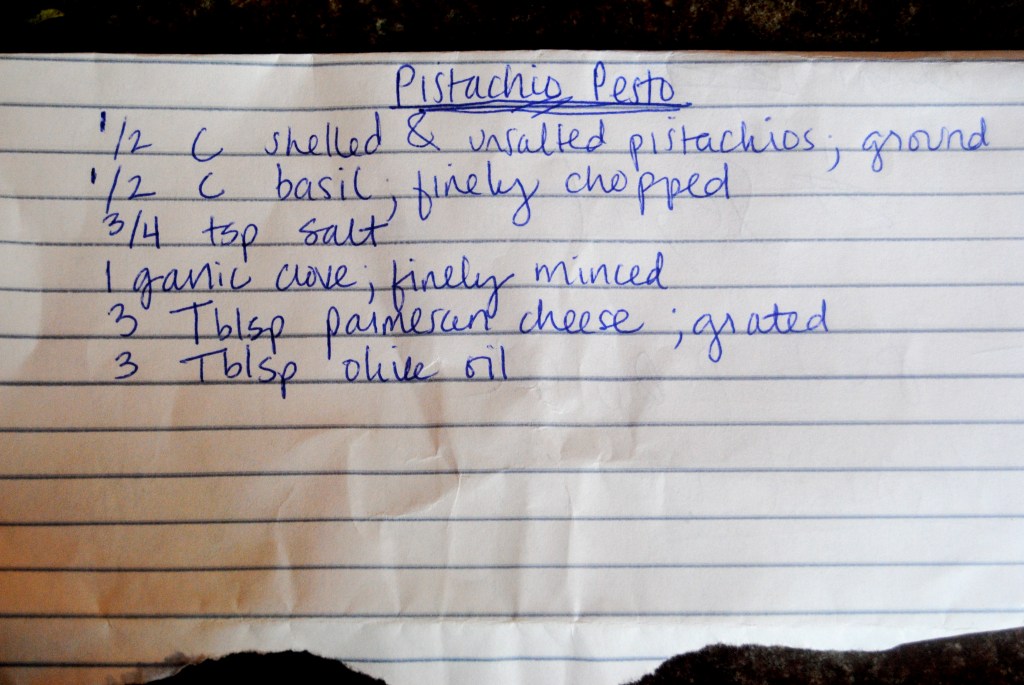 Pistachio Pesto
1/2 C shelled & unsalted pistachios; ground
1/2 C basil; finely chopped
3/4 tsp salt
1 garlic clove; finely minced
3 Tblsp parmesan cheese; grated
3 Tblsp olive oil